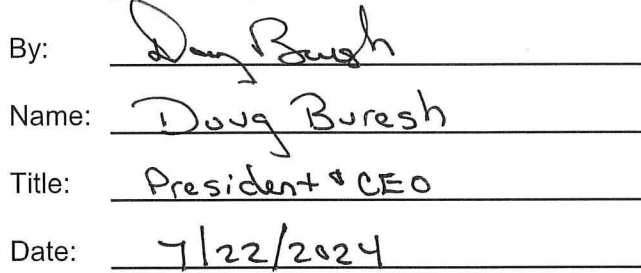 By: Doug Buresh
Name: Doug Buresh
Title: President & CEO
Date: 7/22/2024